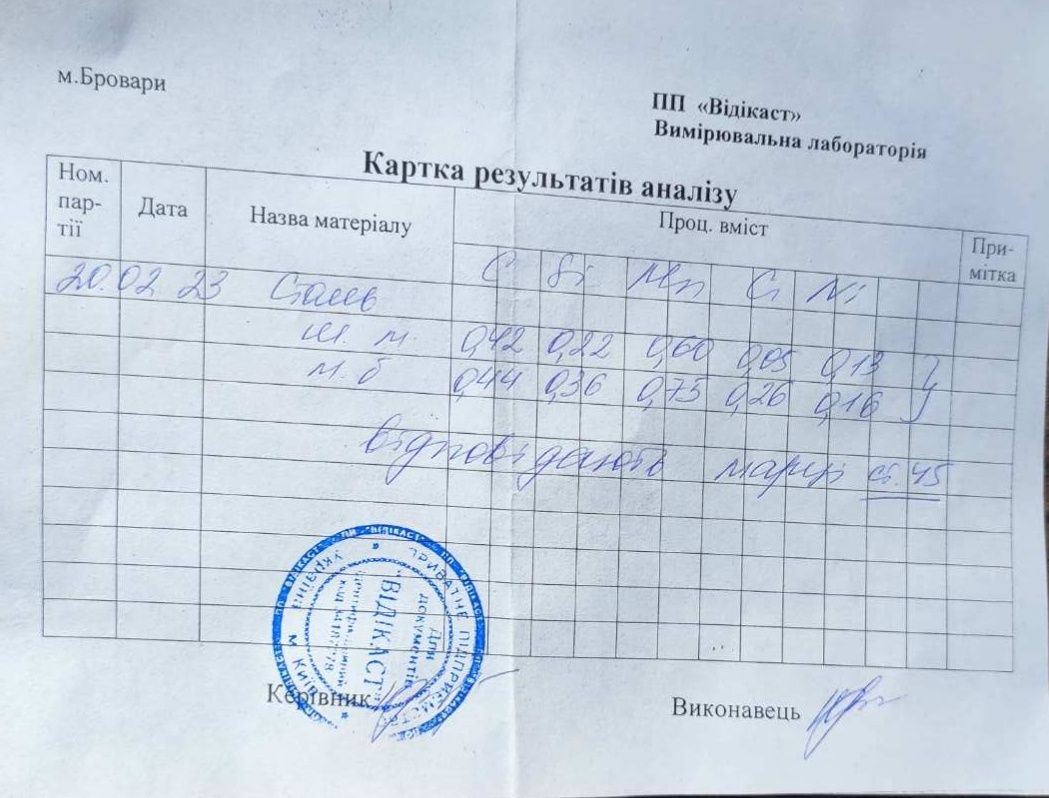 м.Бровари
ПП «Відікаст»
Вимірювальна лабораторія
Картка результатів аналізу
Ном. пар- тії Дата Назва матеріалу Проц. вміст При- мітка
C Si Mn Cr Ni
20.02 23 Сталь
Ш. м. 0,42 0,22 0,60 0,05 0,13
м. б 0,44 0,36 0,75 0,26 0,16
відповідають марці ст. 45
ПРИВАТНЕ ПІДПРИЄМСТВО
УКРАЇНА М КИЇВ
Для
документів
"ВІДІКАСТ"
Керівник
Виконавець